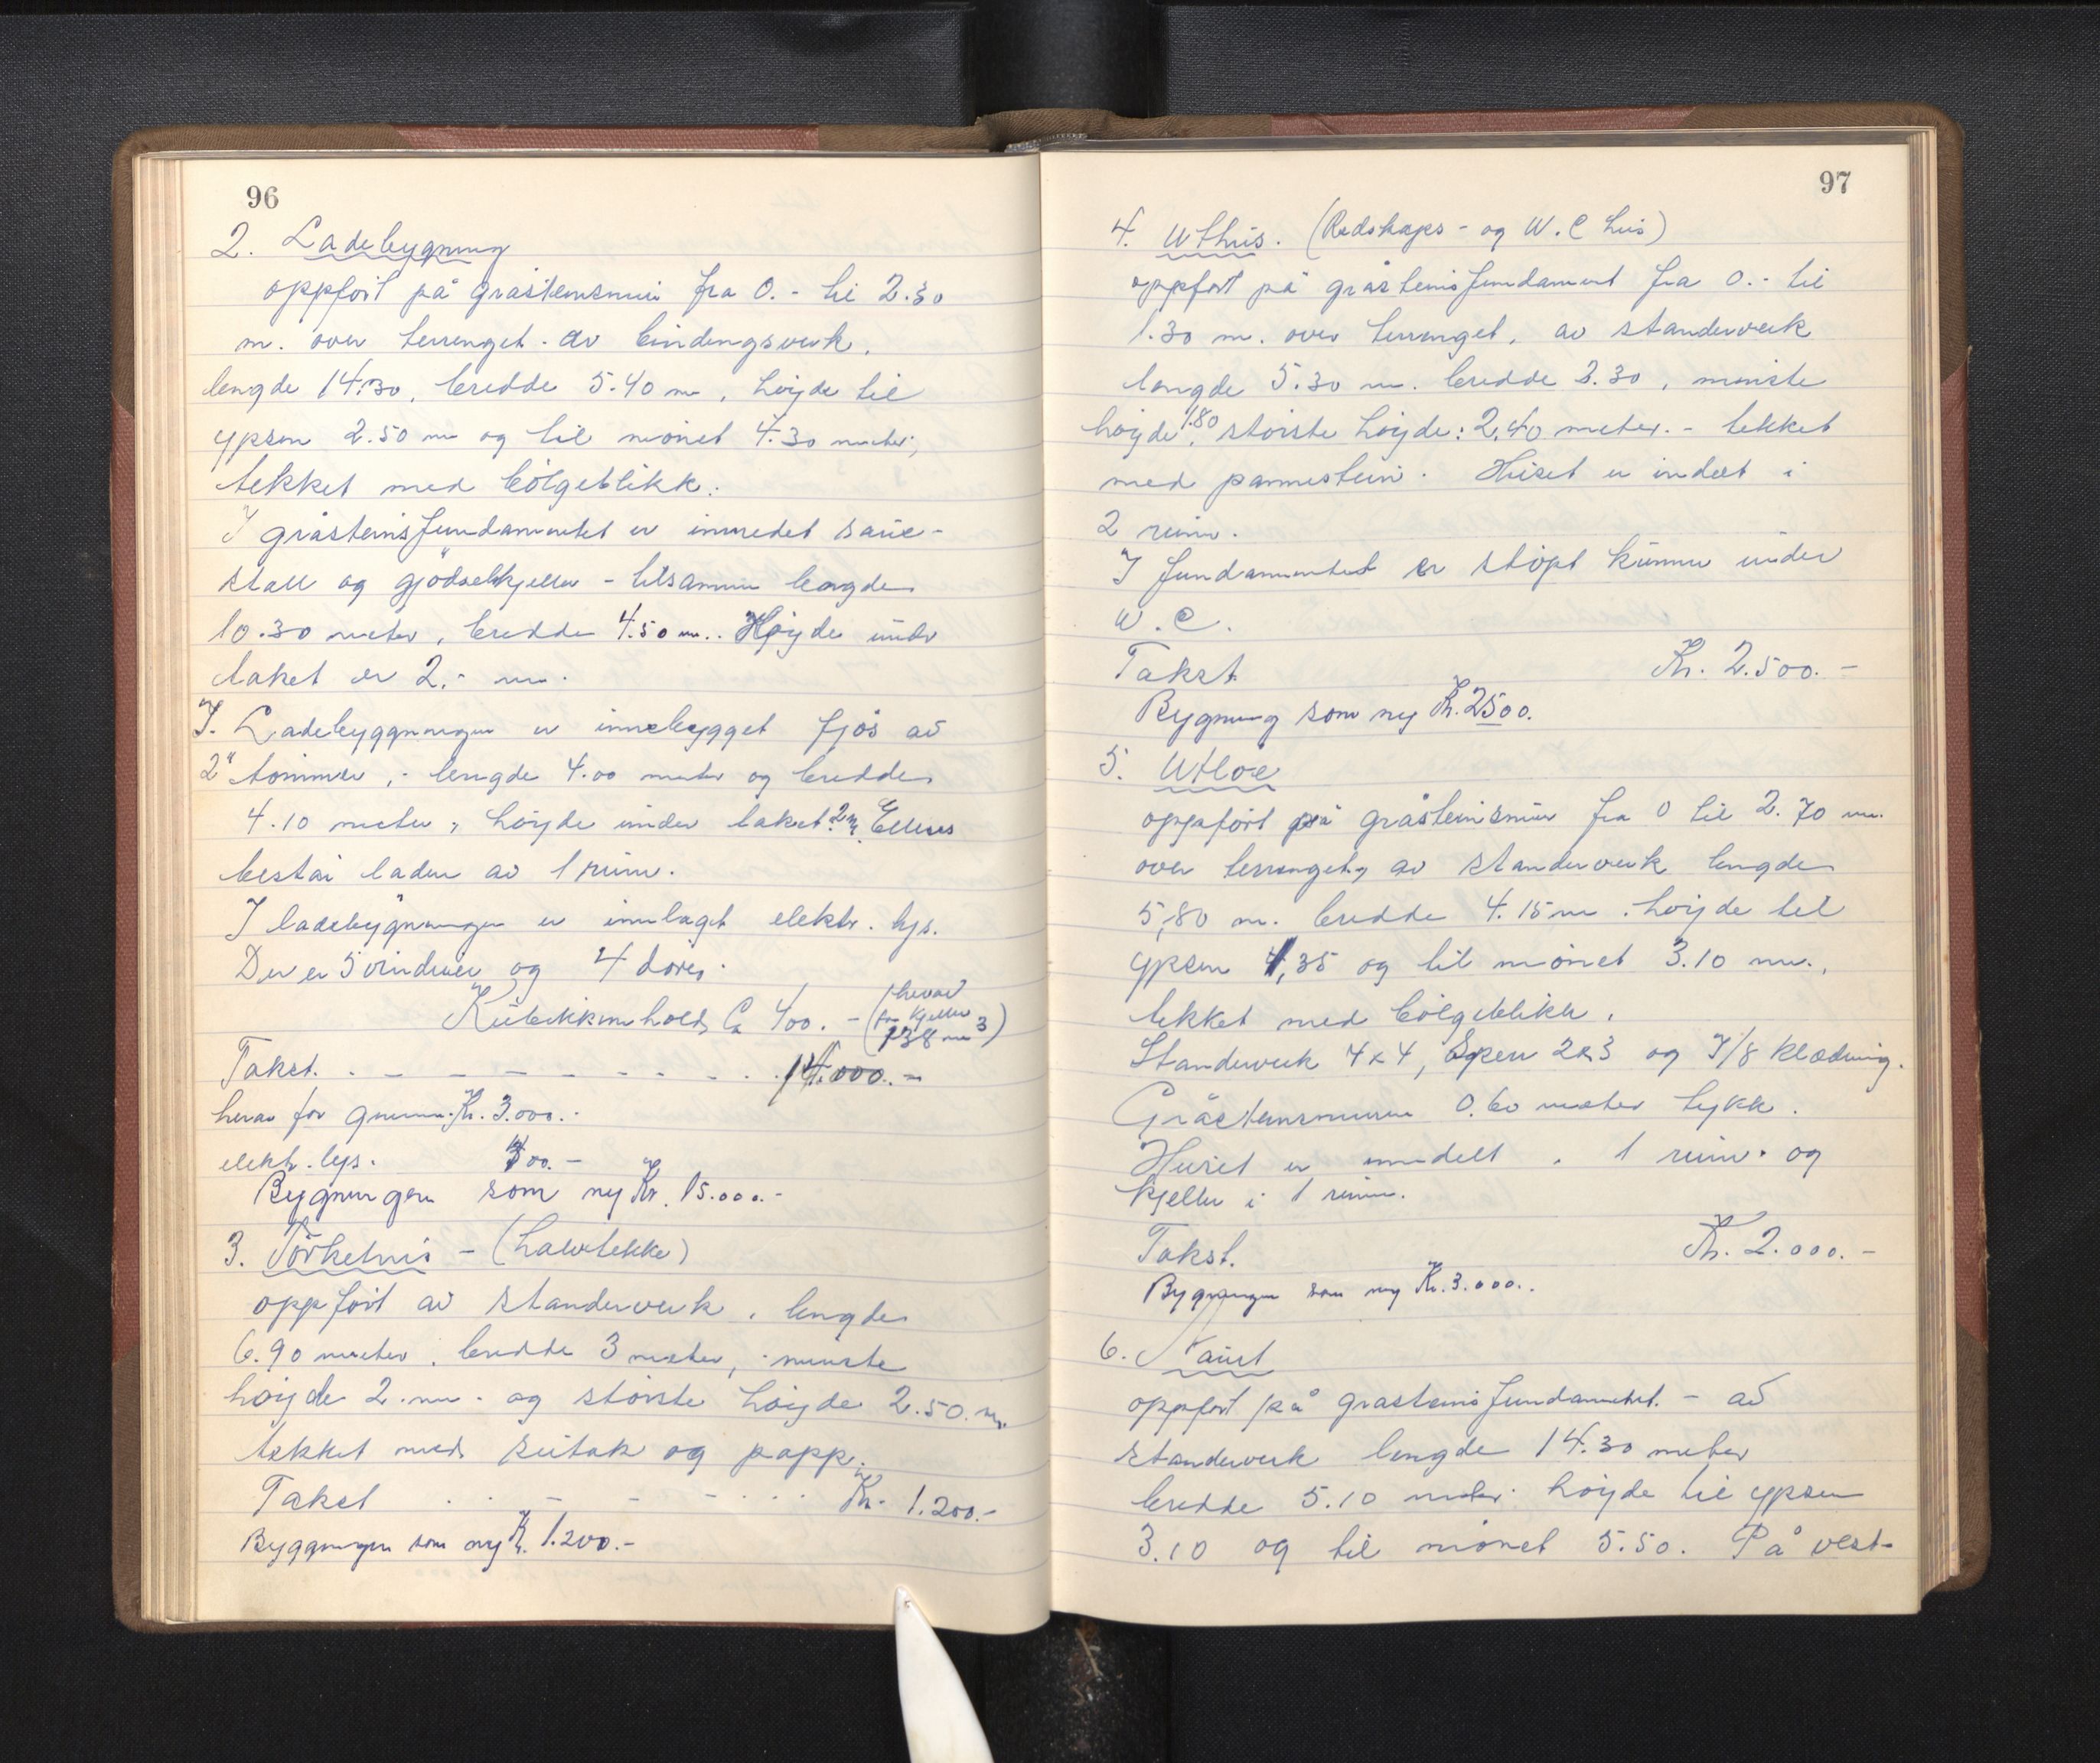 96
2. Ladebygning
oppført på gråsteinsmur fra 0.- til 2.30
m. over terrenget. av bindingsverk.
lengde 14.30, bredde 5.40 m, høyde til
ypsen 2.50 m og til mønet 4.30 meter,
tekket med bølgeblikk.
I gråsteinsfundamentet er innredet saue-
stall og gjødselkjeller - tilsammen lengde
10.30 meter, bredde 4.50 m.. Høyde under
taket er 2.- m.
I. Ladebyggningen er innebygget fjøs av
2" tømmer, - lengde 4.00 meter og bredde
4.10 meter, høyde under taket 2 m. Ellers
består laden av 1 rum.
I ladebygningen er innlaget elektr. lys.
Der er 5 vinduer og 4 dører.
Kubikkinnhold Ca 400. - (herav
for kjeller
138 m3)
Takst. . - - - - - - - . . 14.000.-
herav for grunnm. Kr. 3.000.-
elektr. lys. 400.-
Bygningen som ny Kr. 15.000.-
3. Tørkehus - (halvtekke)
oppført av standerverk, lengde
6.90 meter, bredde 3 meter, minste
høyde 2. m. og største høyde 2.50. m.
tekket med sutak og papp.
Takst . . - - - . . . Kr. 1.200.-
Byggningen som ny Kr. 1.200.-
97
4. Uthus. (Redskaps- og W.C hus)
oppført på gråsteinsfundament fra 0.- til
1.30 m. over terrenget, av standerverk
lengde 5.30 m. bredde 3.30, minste
høyde 1.80, største høyde: 2,40 meter. - tekket
med pannestein. Huset er indelt i
2 rum.
I fundamentet er støpt kumme under
W.C.
Takst Kr. 2.500.-
Bygning som ny Kr. 2500.
5. Utløe
oppført på gråsteinsmur fra 0 til 2.70 m.
over terrenget, av standerverk lengde
5,80 m. bredde 4.15 m. høyde til
ypsen 1,35 og til mønet 3.10 m.,
tekket med bølgeblikk.
Standerverk 4x4, Sperr 2x3 og 7/8 klædning.
Gråsteinsmuren 0.60 meter tykk.
Huset er inndelt i 1 rum. og
kjeller i 1 rum.
Takst. Kr. 2.000.-
Bygningen som ny Kr. 3.000..
6. Naust
oppført på gråsteinsfundamentet. - av
standerverk lengde 14.30 meter
bredde 5.10 meter høyde til ypsen
3.10 og til mønet 5.50. På vest-